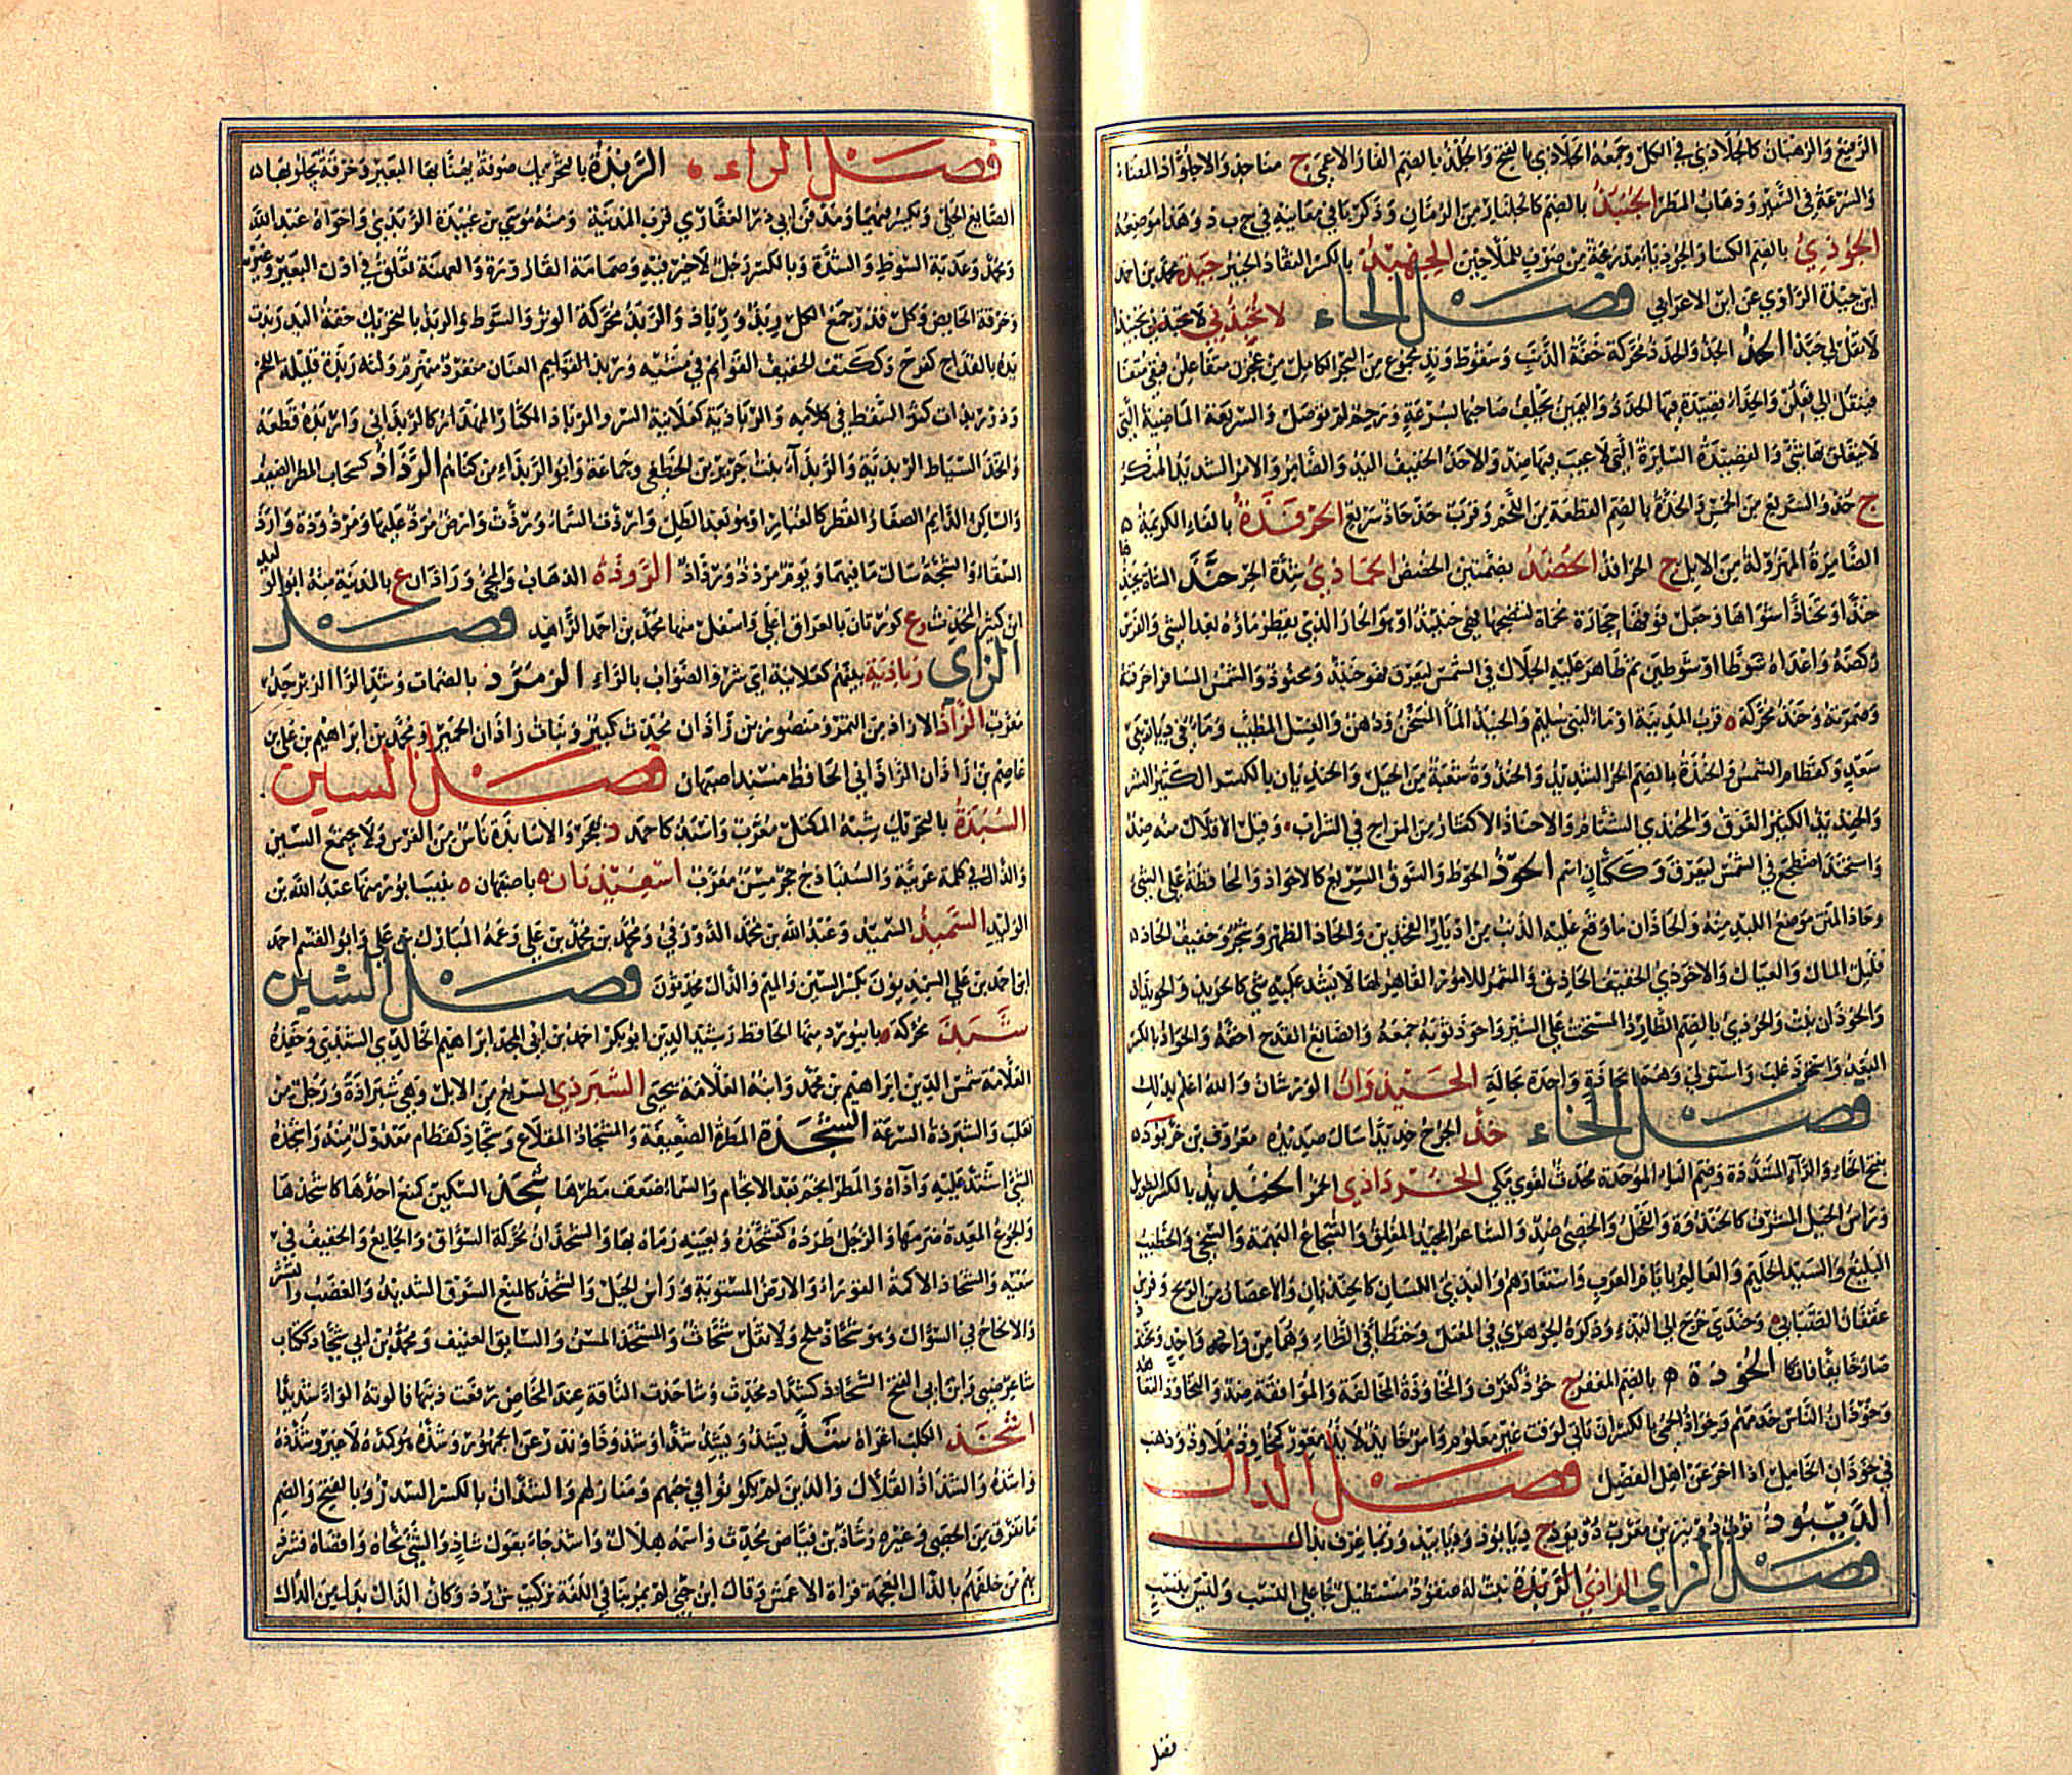 الرضيع والرهبان كالجلاذي في الكل وجمعه الجلاذي بالفتح والجلذ بالضم الفار الاعمى ج مناجذ والاجلواذ المضاء
والسرعة في السير وذهاب المطر الجنبذ بالضم كالجلنار من الرمان وذكر باقي معانيه في ج ب ذ وهذا موضعه
الجوذي بالضم الكساء والجوذياء مدرعة من صوف للملاحين الجهبذ بالكسر النقاد الخبير جيذ محمد بن احمد
ابن جيذة الراوي عن ابن الاعرابي فصل الحاء لا تحبذني لا تحبذني تحبيذا
لا تقل لي حبذا الحذ الجذ والحذذ محركة خفة الذنب وسقوط وتد مجموع من البحر الكامل من عجز متفاعلن فيبقى متفا
فينقل الى فعلن والحذاء قصيدة فيها الحذذ واليمين يحلف صاحبها بسرعة ورحم لم توصل والسريعة الماضية التي
لا يتعلق بها شيء والقصيدة السائرة التي لا عيب فيها ضد والاحذ الخفيف اليد والضامر والامر الشديد المنكر
ج حذ والسريع من الخمس والحذة بالضم القطعة من اللحم وقرب حذحاذ سريع الحرقذة بالفاء الكريمة
الضامرة المهزولة من الابل ج الحرافذ الحضذ بضمتين الحضض الحماذي شدة الحر حنذ الشاة يحنذها
حنذا وتحناذا شواها وجعل فوقها حجارة محماة لتنضجها فهي حنيذ او هو الحار الذي يقطر ماؤه بعد الشي والفرس
ركضه واعداه شوطا او شوطين ثم ظاهر عليه الجلال في الشمس ليعرق فهو حنيذ ومحنوذ والشمس المسافر احرقته
وصهرته وحنذ محركة ة قرب المدينة او ماء لبني سليم والحنيذ الماء المسخن ودهن والغسل المطيب وماء في ديار بني
سعد وكقطام الشمس والحنذة بالضم الحر الشديد والحنذوة شعبة من الجبل والحنذيان بالكسر الكثير الشر
والحنذيذ الكثير العرق والحنذي الشتام والاحناذ الاكثار من المزاج في الشراب وقيل الاقلال منه ضد
واستحنذ اضطجع في الشمس ليعرق وككتان اسم الحوذ الحوط والسوق السريع كالاحواذ والمحافظة على الشيء
وحاذ المتن موضع اللبد منه والحاذان ما وقع عليه الذنب من ادبار الفخذين والحاذ الظهر وشجر وخفيف الحاذ
قليل المال والعيال والاحوذي الخفيف الحاذق والمشمر للامور القاهر لها لا يشذ عليه شيء كالحويذ والحويذان
والحوذان نبت والحوذي بالضم الطارد المستحث على السير واحوذ ثوبه جمعه والصانع القدح اخفه والحواذ بالكسر
البعد واستحوذ غلب واستولى وهما بحاذة واحدة بحالة الحيذوان الورشان والله اعلم بذلك
فصل الخاء خذ الجرح خذيذا سال صديده معروف بن خربوذ
بفتح الخاء والراء المشددة وضم الباء الموحدة محدث لغوي مكي الخرداذي الخمر الخنذيذ بالكسر الطويل
وراس الجبل المشرف كالخنذوة والفحل والخصي ضد والشاعر المجيد المفلق والشجاع البهمة والسخي والخطيب
البليغ والسيد الحليم والعالم بايام العرب واشعارهم والبذيء اللسان كالخنذيان والاعصار من الريح وفرس
عقفان الضبابي وخنذى خرج الى البذاء وذكره الجوهري في المعتل وخنظى في الظاء وهما من واحد وتخذ
صار خا بفافانكا الخوذة ه بالضم المغفر ج خوذ كغرف والمخاوذة المخالفة والموافقة ضد والتخاوذ التعاهد
وخوذان الناس خدمهم وخواذ الحمى بالكسر ان تاتي لوقت غير معلوم وامر خايذ لايذ معوز كمخاوذ ملاوذ وذهب
في خوذان الخامل اذا اخر عن اهل الفضل فصل الدال
الديبوذ ثوب ذو نيرين معرب دوبوذ ج ديابوذ وديابيذ وربما عرف بدال
فصل الزاي الزاذي الزبذة نبت له عنقود مستطيل تجا على النسب وليس بنسب
فصل
فصل الراء ه الربذة بالتحريك صوفة يهنا بها البعير وخرقة يجلو بها
الصايغ الحلي وتكسر فيهما ومدفن ابي ذر الغفاري قرب المدينة ومنه موسى بن عبيدة الربذي واخواه عبد الله
ومحمد وعذبة السوط والشدة وبالكسر رجل لا خير فيه وصمامة القارورة والعهنة تعلق في اذن البعير وغيره
وخرقة الحايض وكل قذر جمع الكل ربذ ورباذ والربذ محركة الوتر والسوط والربذ بالتحريك خفة اليد ربذت
يده بالقداح كفرح وككتف الخفيف القوائم في مشيه وربذ القوايم العنان منفرد منهزم ولثة ربذة قليلة اللحم
وذو ربذات كثير السقط في كلامه والرباذية كعلانية الشر والرباذ المكثار المهذار كالربذاني واربذه قطعه
واتخذ السياط الربذية والربذاء بنت جرير بن الخطفى وجماعة وابو الربذاء من كناهم الرذاذ كسحاب المطر الضعيف
والساكن الدايم الصغار القطر كالغبار او هو بعد الطل وارذت السماء ورذت وارض مرذ عليها ومرذوذة وارذ
السقاء والشجة سال ما فيهما ويوم مرذ ورذاذ الروذة الذهاب والمجي وراذان ع بالمدينة منه ابو الوليد
ابن كثير المحدث وع كورتان بالعراق اعلى واسفل منها محمد بن احمد الزاهد فصل
الزاي زباذية بينهم كعلانية اي شر والصواب بالراء الزمرذ بالضمات وشد الراء الزبرجد
معرب الزاذ الازاذ من التمر ومنصور بن زاذان محدث كبير وبنات زاذان الحمير ومحمد بن ابراهيم بن علي بن
عاصم بن زاذان الزاذاني الحافظ مسند اصبهان فصل السين
السبذة بالتحريك شبه المكتل معرب واسبذ كاحمد د بهجر والاسابذة ناس من الفرس ولا يجتمع السين
والذال في كلمة عربية والسنباذج حجر مسن معرب اسفيذبان ة باصبهان ة بنيسابور منها عبد الله بن
الوليد السميذ السميد وعبد الله بن محمد الدورقي ومحمد بن محمد بن علي وعمه المبارك بن علي وابو القسم احمد
ابن احمد بن علي السمذيون بكسر السين والميم والذال محدثون فصل الشين
شبذ محركة ة بابيورد منها الحافظ رشيد الدين ابو بكر احمد بن ابي المجد ابراهيم الخالدي الشبذي وحفيده
العلامة شمس الدين ابراهيم بن محمد وابنه العلامة يحيى الشبرذي السريع من الابل وهي شبرذاة ورجل من
تغلب والشبرذة السرعة الشجذة المطرة الضعيفة والمشجاذ المقلاع وشجاذ كقطام معدول منه واشجذه
الشيء اشتد عليه واذاه والمطر انجم بعد الانجام والسماء ضعف مطرها شحذ السكين كمنع احدها كاشحذها
والجوع المعدة ضرمها والرجل طرده كشحذه وبعينه رماه بها والشحذان محركة السواق والجايع والخفيف في
سعيه والشحاذ الاكمة القوراء والارض المستوية وراس الجبل والشحذ كالمنع السوق الشديد والغضب والقشر
والالحاح في السؤال وهو شحاذ ملح ولا تقل شحاث والمشحذ المسن والسايق العنيف ومحمد بن ابي شحاذ ككتاب
شاعر ضبي وابن ابي الفتح الشحاذ كشداد محدث وشاحذت الناقة عند المخاض رفعت ذنبها فالوته الواء شديدا
اشخذ الكلب اغراه شذ يشذ ويشذ شذا وشذوذا وندر عن الجمهور وشذه هو كمده لا غير وشذذه
واشذه والشذاذ القلال والذين لم يكونوا في حيهم ومنازلهم والشذان بالكسر السدر وبالفتح والضم
ما تفرق من الحصى وغيره وشاذ بن فياض محدث واسمه هلال واشذ جاء بقول شاذ والشيء نحاه واقصاه فشرذ
بهم من خلفهم بالذال المعجمة قراة الاعمش وقال ابن جني لم يمر بنا في اللغة تركيب ش ر ذ وكان الذال بدل من الدال